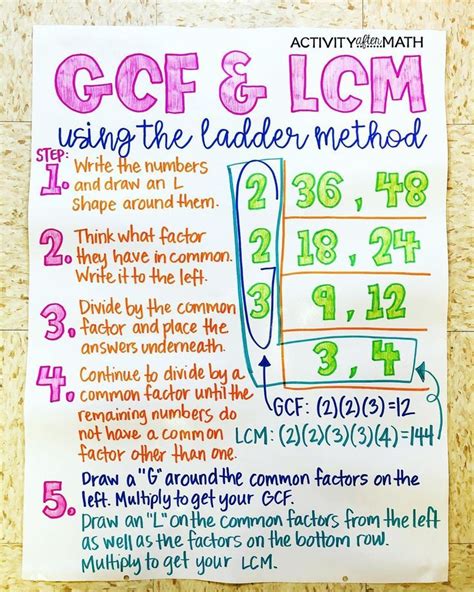 ACTIVITY after MATH
GCF & LCM
using the ladder method
STEP:
1. Write the numbers
and draw an L
shape around them.
2. Think what factor
they have in common.
Write it to the left.
3. Divide by the common
factor and place the
answers underneath.
4. Continue to divide by a
common factor until the
remaining numbers do
not have a common
factor other than one.
2 36, 48
2 18, 24
3 9, 12
3, 4
GCF: (2)(2)(3)=12
LCM: (2)(2)(3)(3)(4)=144
5. Draw a "G" around the common factors on the
left. Multiply to get your GCF.
Draw an "L" on the common factors from the left
as well as the factors on the bottom row.
Multiply to get your LCM.